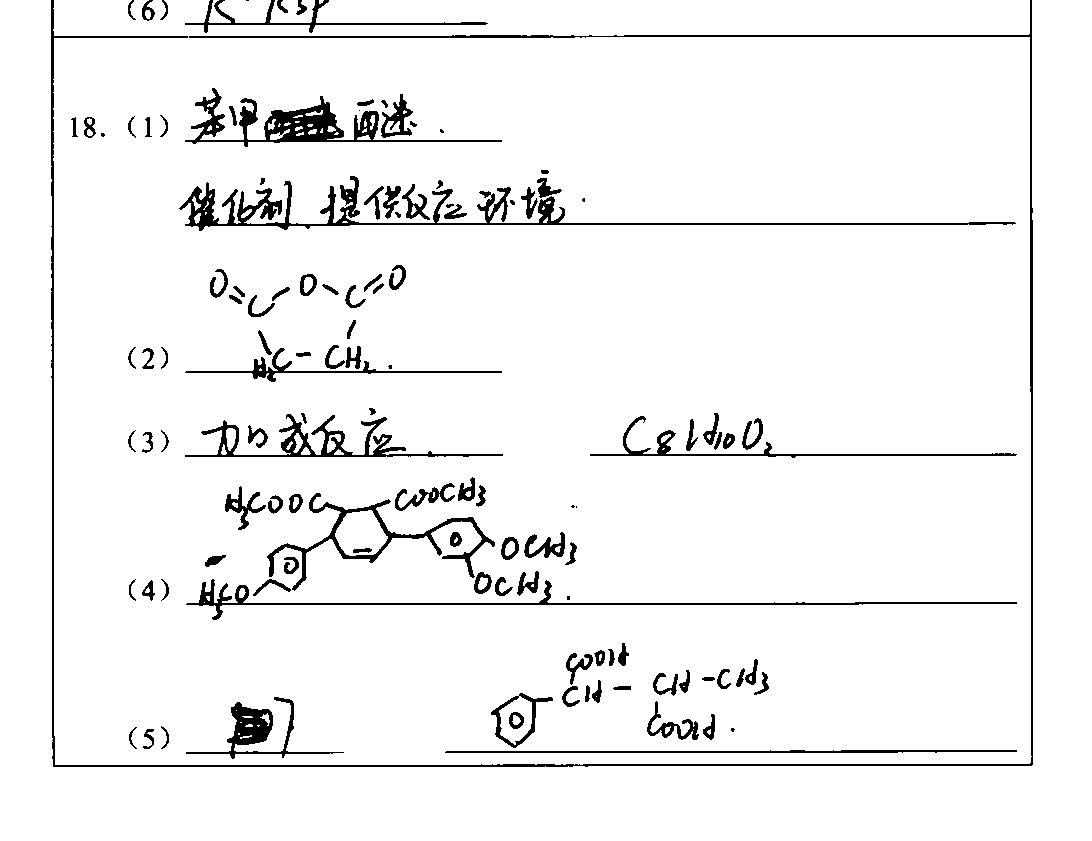 (6)
18.(1) 苯甲醚.
催化剂、提供反应环境.
O=C-O-C=O
(2) H₂C-CH₂.
(3) 加成反应. C₈H₁₀O₂.
H₃COOC COOCH₃
OCH₃
(4) H₃CO OCH₃.
COOH
CH-CH-CH₃
(5) 7 COOH.